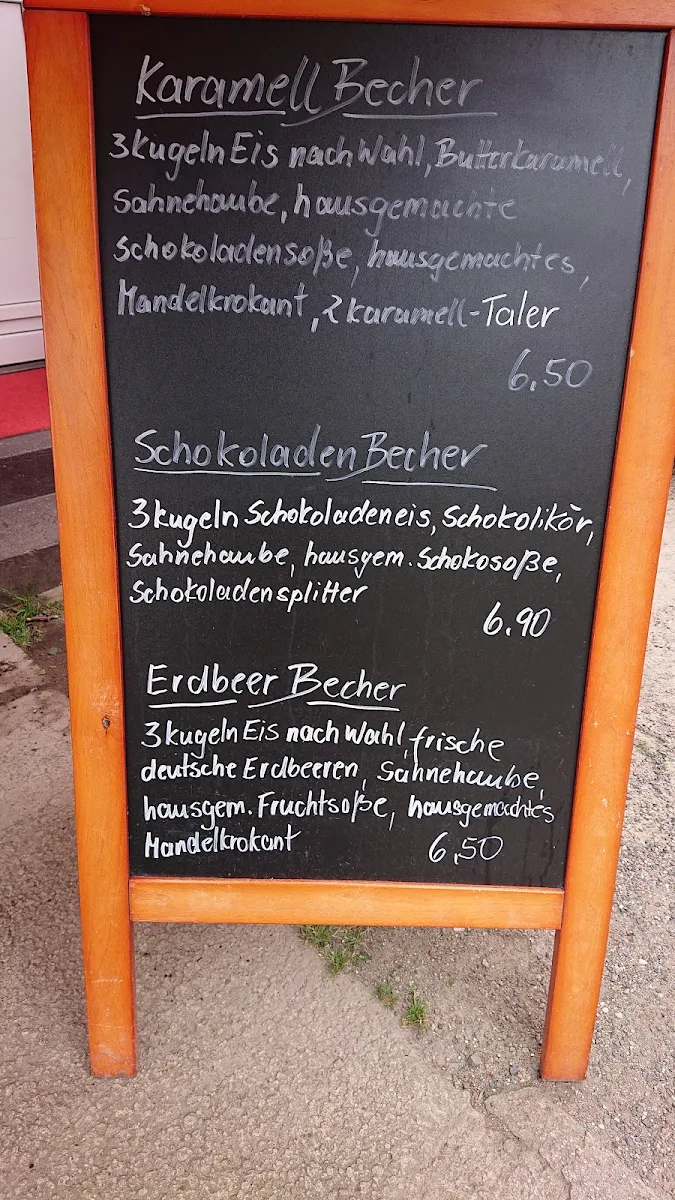 Karamell Becher
3 Kugeln Eis nach Wahl, Butterkaramell,
Sahnehaube, hausgemachte
Schokoladensoße, hausgemachtes,
Mandelkrokant, 2 Karamell-Taler
6,50
Schokoladen Becher
3 Kugeln Schokoladeneis, Schokolikör,
Sahnehaube, hausgem. Schokosoße,
Schokoladensplitter
6.90
Erdbeer Becher
3 Kugeln Eis nach Wahl, frische
deutsche Erdbeeren, Sahnehaube,
hausgem. Fruchtsoße, hausgemachtes
Mandelkrokant 6,50